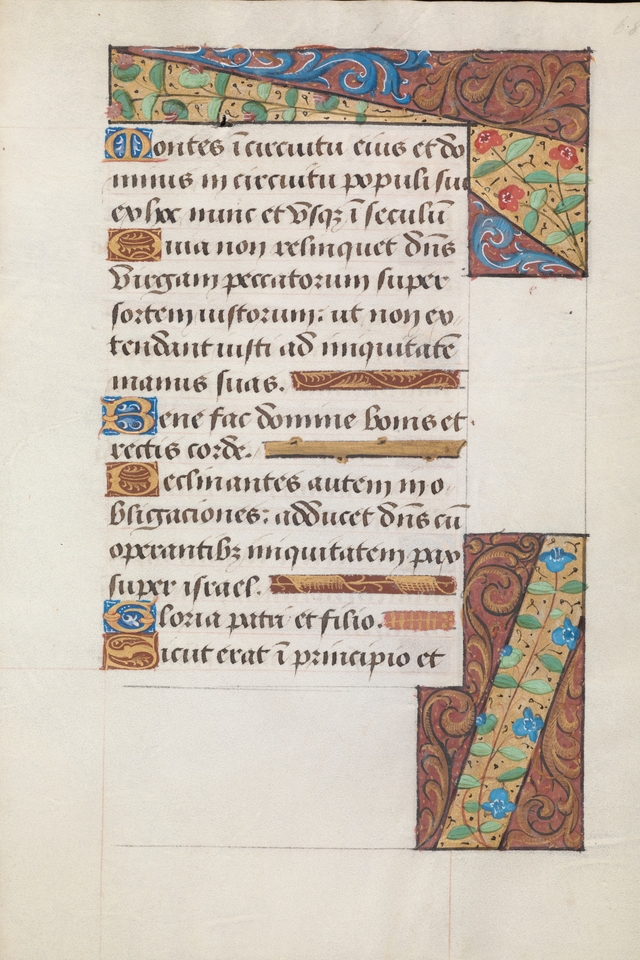 Montes ī circuitu eius et do
minus in circuitu populi sui
ex hoc nunc et vsqꝫ ī seculū
Quia non relinquet dn̄s
virgam peccatorum super
sortem iustorum: ut non ex
tendant iusti ad iniquitatē
manus suas.
Bene fac domine bonis et
rectis corde.
Declinantes autem in o
bligaciones: adducet dn̄s cū
operantibꝫ iniquitatem pax
super israel.
Gloria patri et filio.
Sicut erat ī principio et